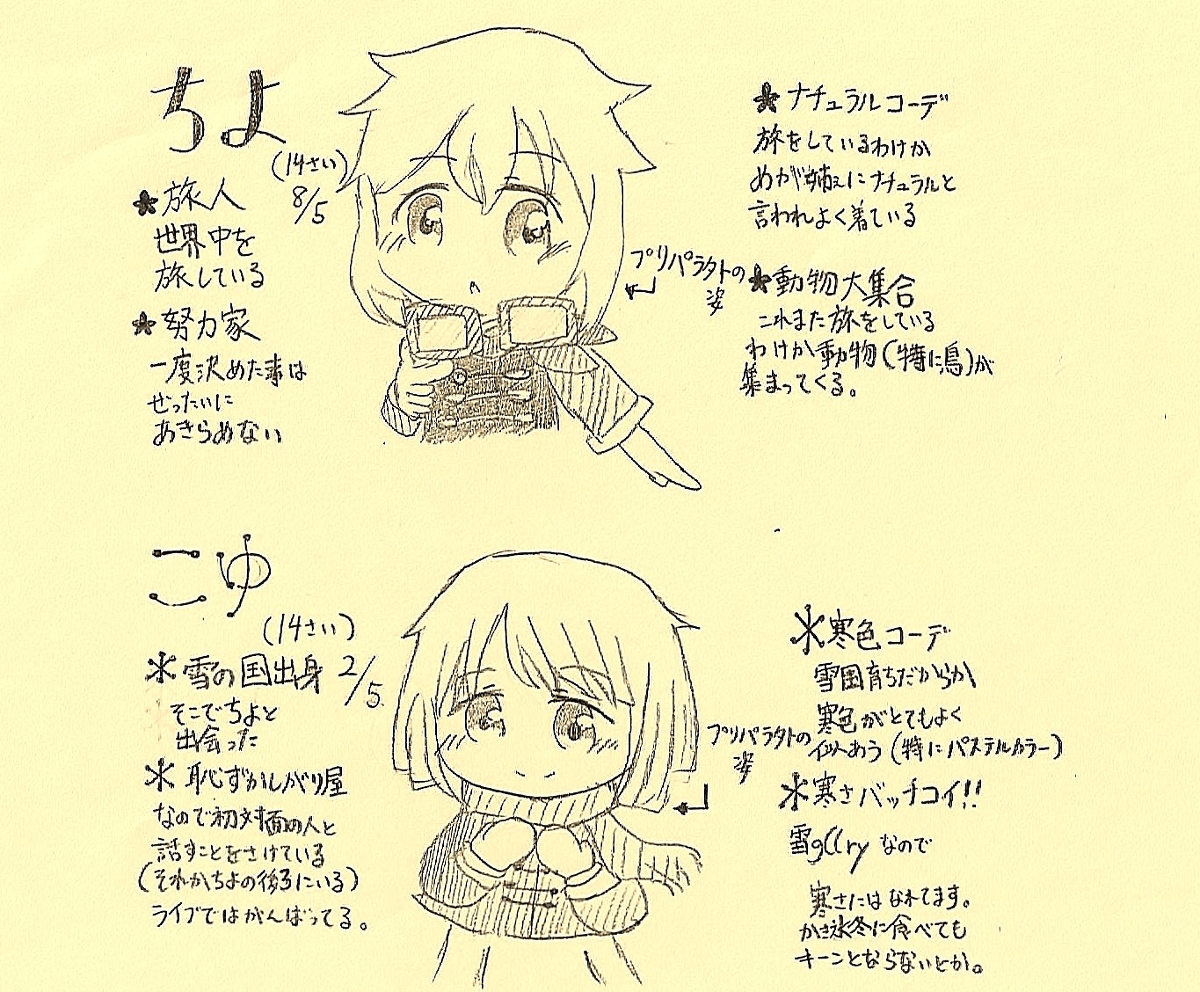 ちよ
(14さい)
8/5
★旅人
世界中を
旅している
★努力家
一度決めた事は
ぜったいに
あきらめない
プリパラタトの
姿
★ナチュラルコーデ
旅をしているわけか
めが姉ぇにナチュラルと
言われよく着ている
★動物大集合
これまた旅をしている
わけか動物(特に鳥)が
集まってくる。
こゆ
(14さい)
2/5
＊雪の国出身
そこでちよと
出会った
＊恥ずかしがり屋
なので初対面の人と
話すことをさけている
(それかちよの後ろにいる)
ライブではがんばってる。
プリパラタトの
姿
＊寒色コーデ
雪国育ちだからか
寒色がとてもよく
似あう(特にパステルカラー)
＊寒さバッチコイ!!
なので
寒さにはなれてます。
かき氷冬に食べても
キーンとならないとか。